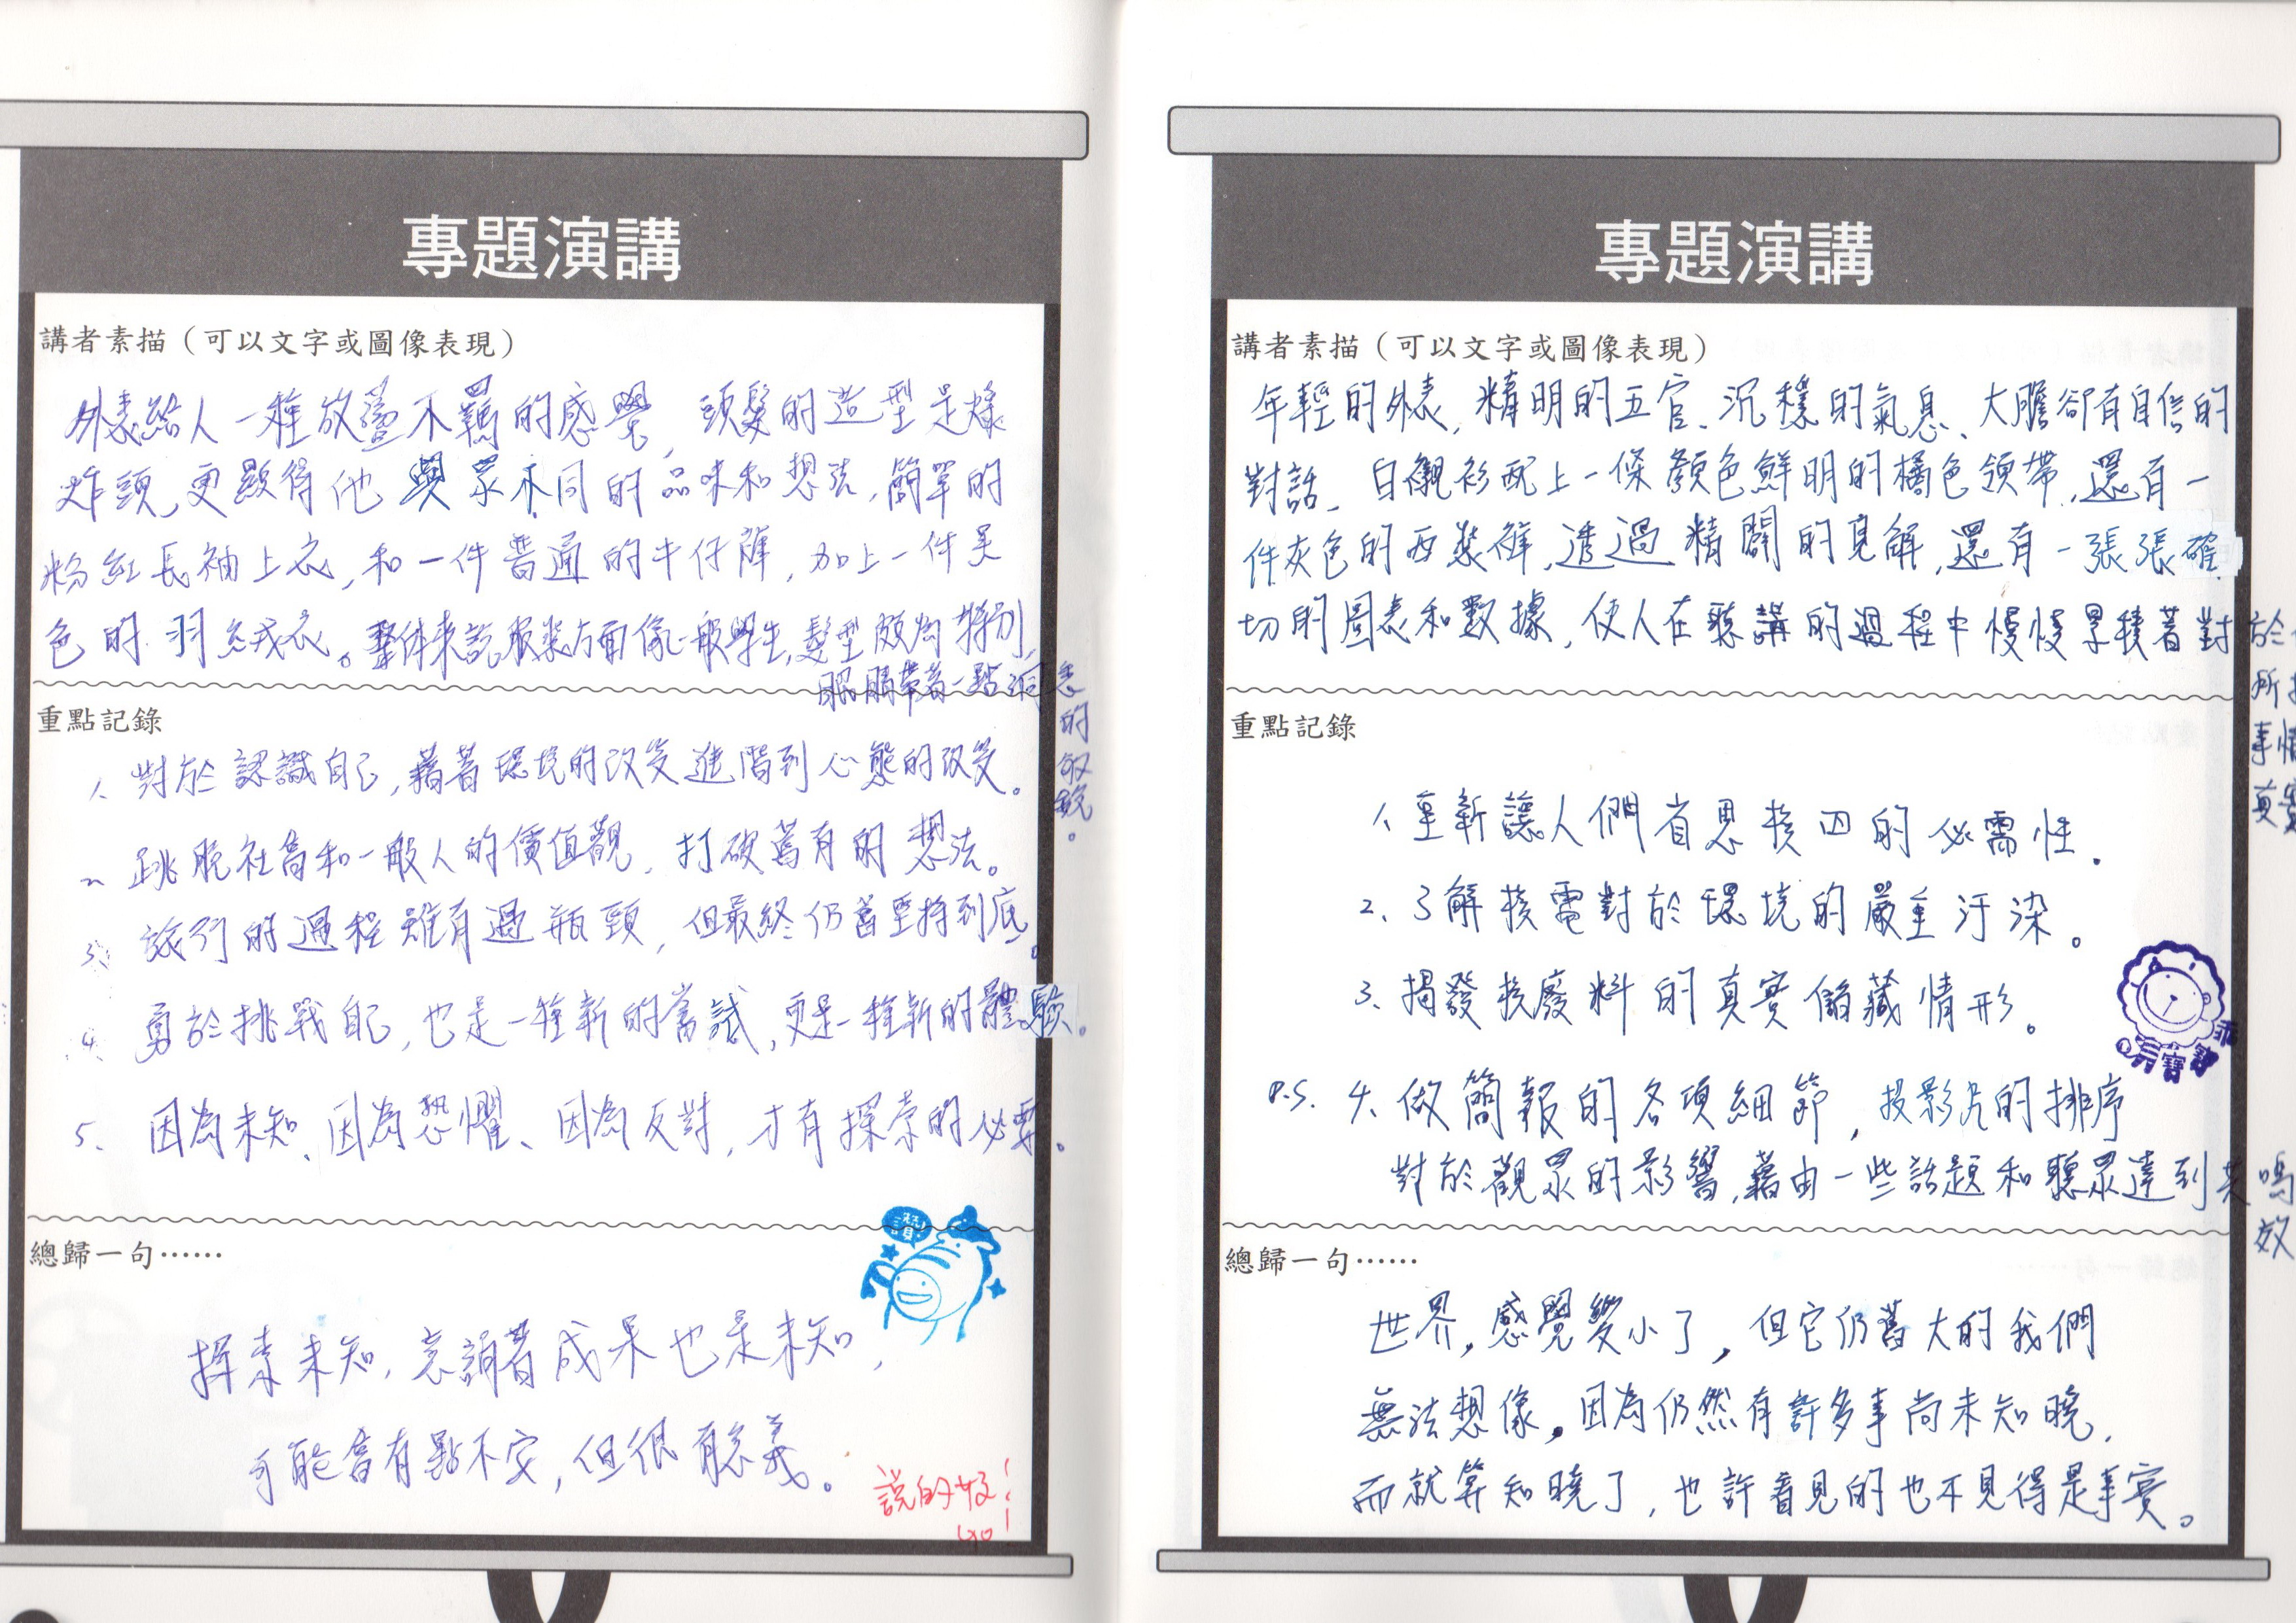 專題演講
講者素描（可以文字或圖像表現）
外表給人一種放盪不羈的感覺，頭髮的造型是爆
炸頭，更顯得他與眾不同的品味和想法，簡單的
粉紅長袖上衣，和一件普通的牛仔褲，加上一件
色的羽絨衣。整體來說服裝方面像一般學生，髮型頗為特別，
眼睛帶著一點洞悉的敏銳。
重點記錄
1、對於認識自己，藉著環境的改變進階到心態的改變。
2、跳脫社會和一般人的價值觀，打破舊有的想法。
3、旅行的過程雖有過瓶頸，但最終仍舊堅持到底。
4、勇於挑戰自己，也是一種新的嘗試，更是一種新的體驗。
5、因為未知、因為恐懼、因為反對，才有探索的必要。
總歸一句……
讚!
探索未知，意謂著成果也是未知，
可能會有點不安，但很有意義。
說的好!!
專題演講
講者素描（可以文字或圖像表現）
年輕的外表，精明的五官、沉穩的氣息、大膽卻有自信的
對話、白襯衫配上一條顏色鮮明的橘色領帶，還有一
件灰色的西裝褲，透過精闢的見解，還有一張張確
切的圖表和數據，使人在聽講的過程中慢慢累積著對於
所
事情
真實
重點記錄
1、重新讓人們省思核四的必需性。
2、了解核電對於環境的嚴重汙染。
3、揭發核廢料的真實儲藏情形。
乖
寶寶
P.S. 4、做簡報的各項細節，投影片的排序
對於觀眾的影響，藉由一些話題和聽眾達到共鳴
效
總歸一句……
世界，感覺變小了，但它仍舊大的我們
無法想像。因為仍然有許多事尚未知曉，
而就算知曉了，也許看見的也不見得是事實。